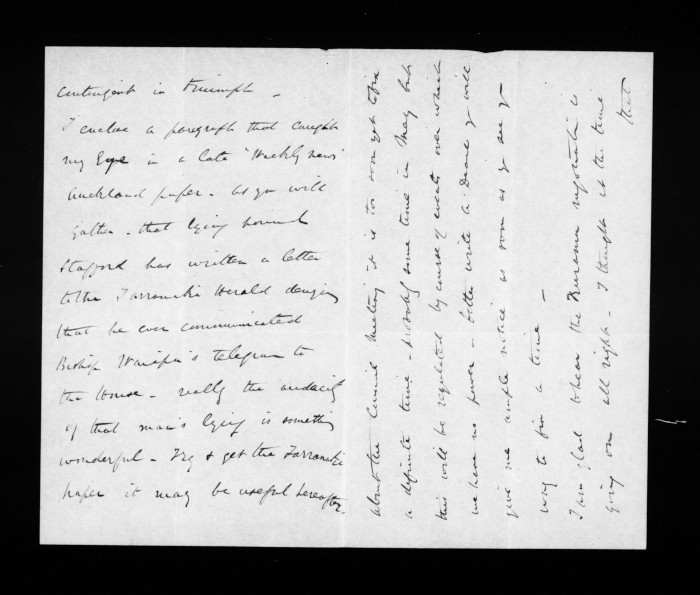 contingent in triumph -
I enclose a paragraph that caught
my Eye in a late "Weekly News"
Auckland paper - as you will
gather - that lying
Stafford has written a letter
to the Tarranaki Herald denying
that he ever communicated
Bishop telegram to
the House - really the audacity
of that man's lying is something
wonderful - Try & get the Tarranaki
paper it may be useful hereafter.
about the Council Meeting it is too soon yet to fix
a definite time - probably some time in May but
this will be regulated by course of events over which
we have no power - better write to & will
give me ample notice as soon as you see yr
way to fix a time -
I am glad to hear the negotiation is
going on all right - I thought at the time
that